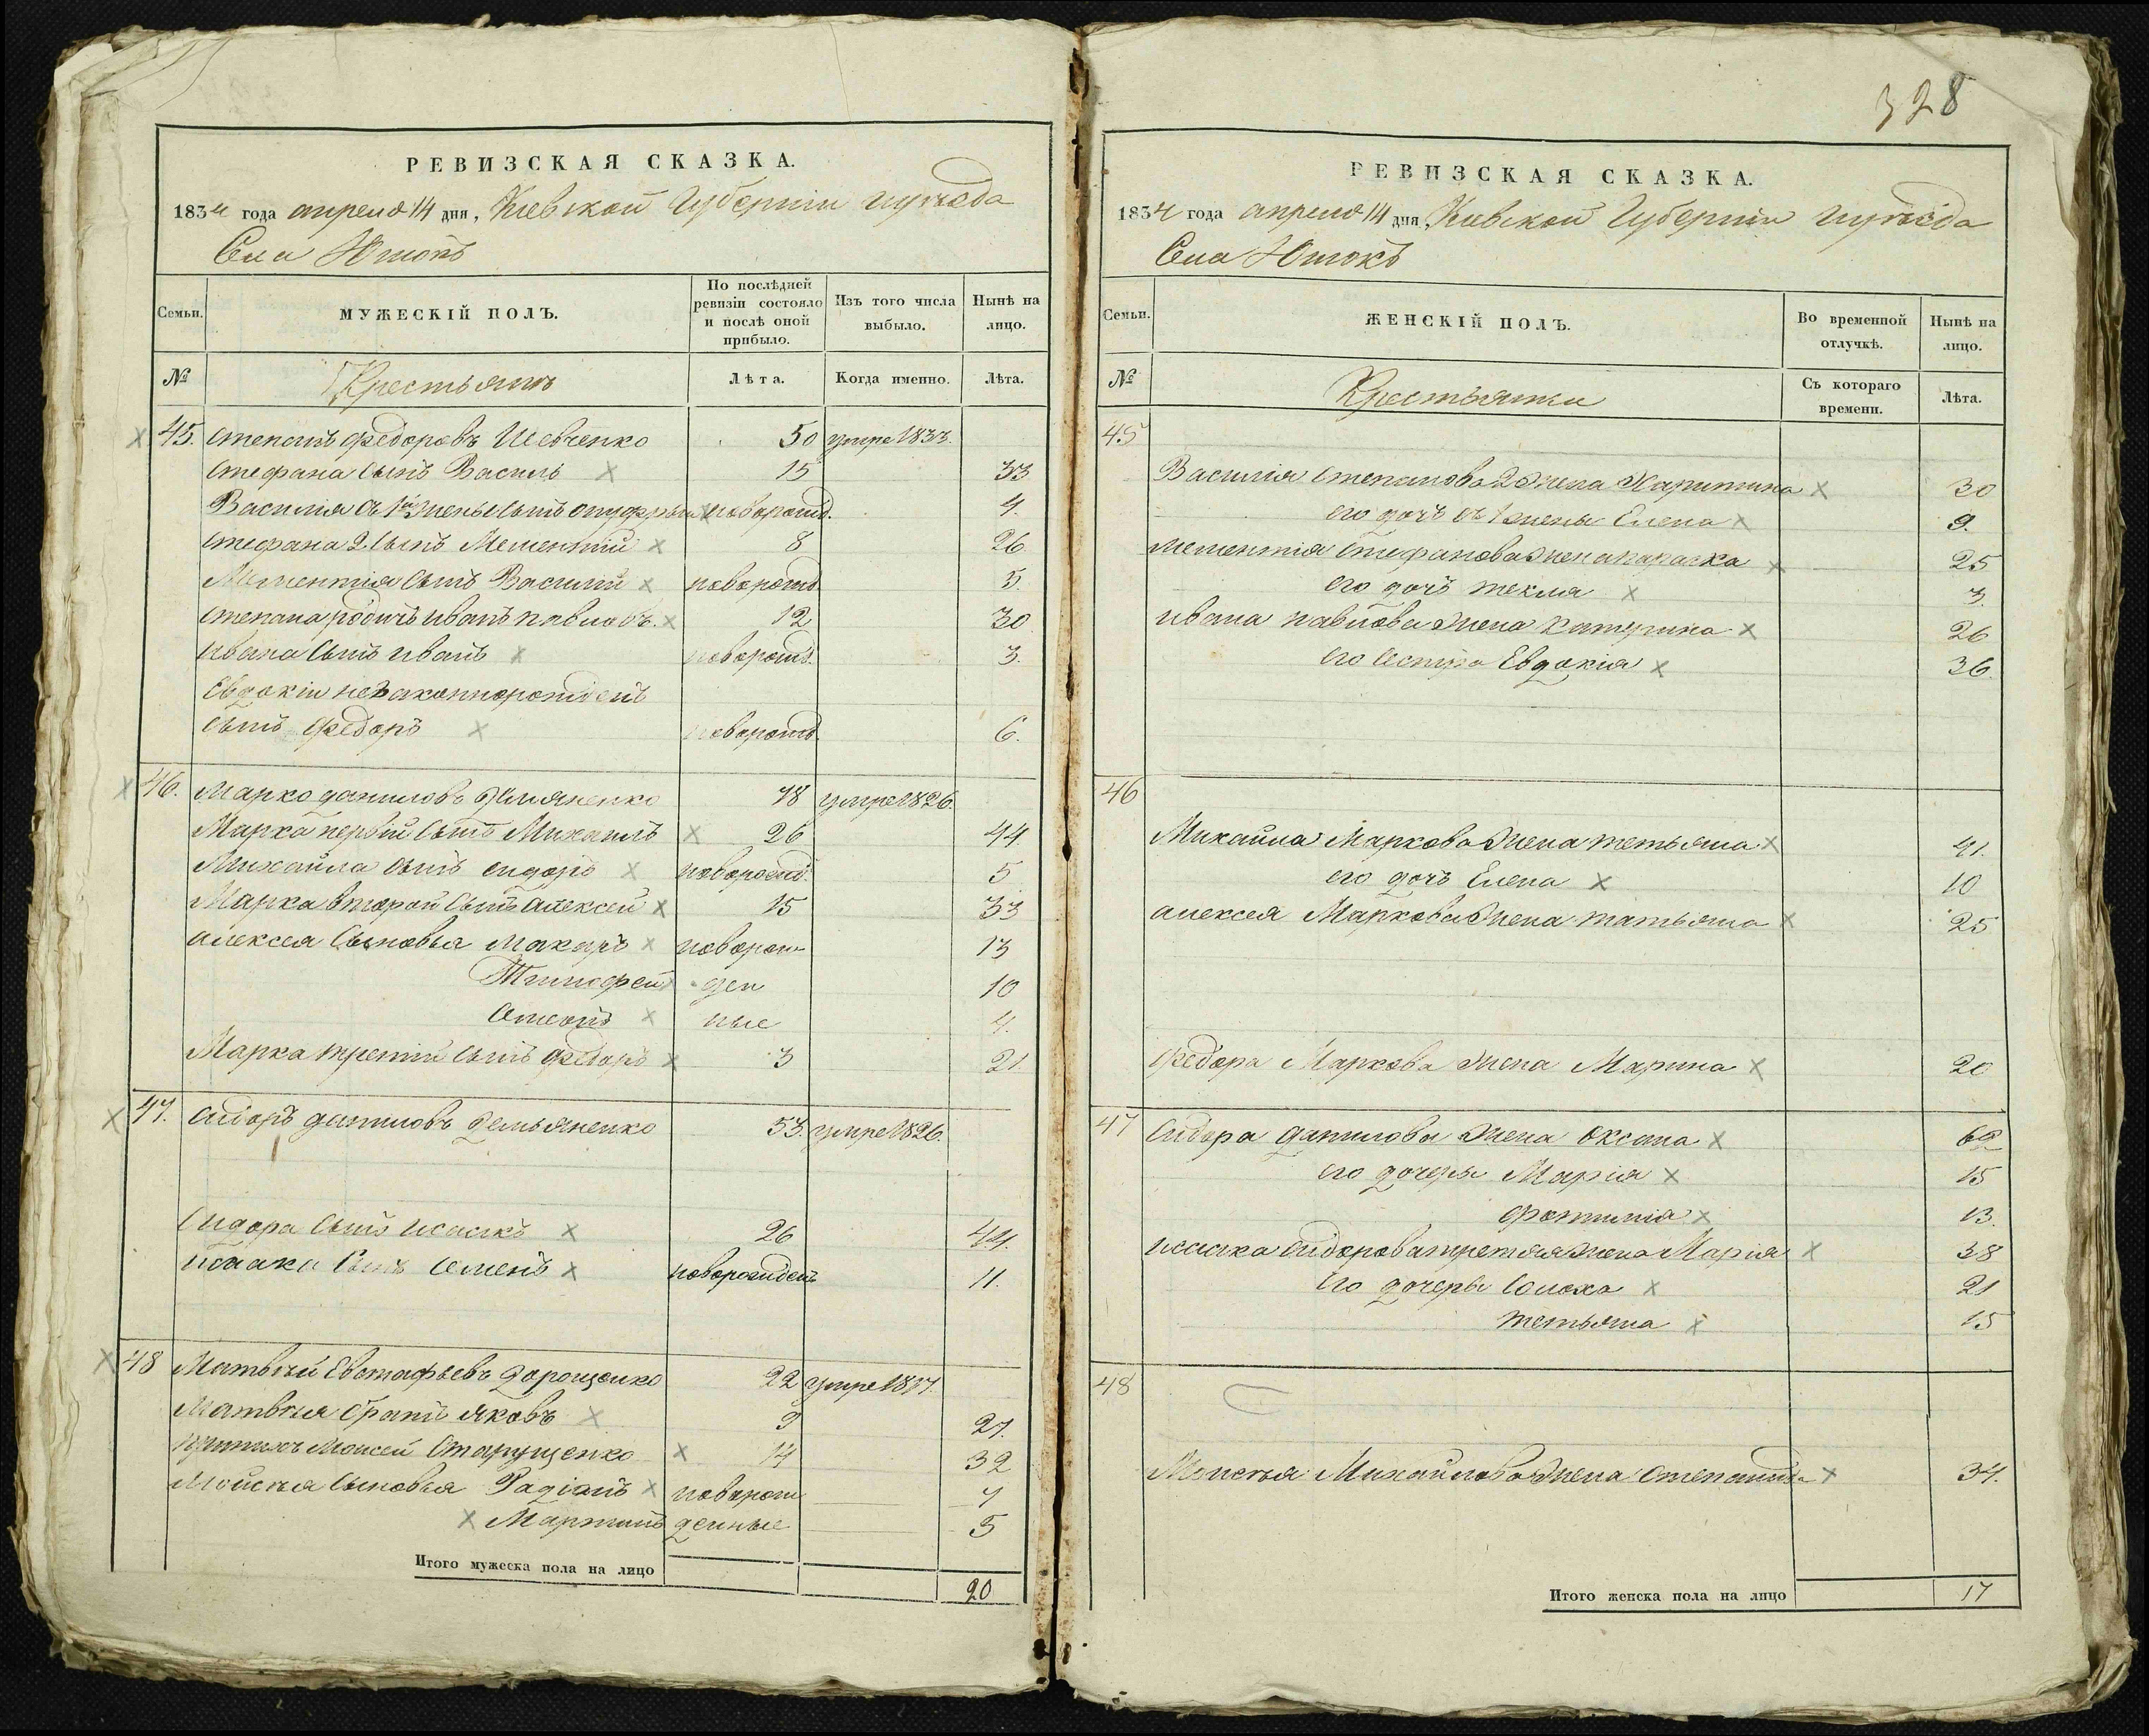 328
РЕВИЗСКАЯ СКАЗКА.
1834 года апреля 14 дня, Киевской Губернии и уезда
Села Юшокъ
Семьи.
МУЖЕСКІЙ ПОЛЪ.
По послѣдней ревизіи состояло и послѣ оной прибыло.
Изъ того числа выбыло.
Нынѣ на лицо.
№
Крестьянъ
Лѣта.
Когда именно.
Лѣта.
45. Степанъ Федоровъ Шевченко 50 умре 1833.
Стефана сынъ Василь 15 33
Василия съ 1й жены сынъ новорожд. 4.
Стефана 2 сынъ Мелентий 8 26
Мелентия сынъ Василий новорожд. 5.
Степана родичъ Иванъ Павловъ. 12 30
Ивана сынъ Иванъ новорожд. 3.
Евдокіи незаконнорожденъ
сынъ Федоръ новорожд. 6.
46. Марко Даниловъ умре 1826.
Марка первій сынъ Михаилъ 26 44
Михайла сынъ Сидоръ новорожд. 5
Марка второй сынъ Алексей 15 33
Алексея сыновья Макаръ новорож 13
Тимофей ден 10
ные 4.
Марка третий сынъ Федоръ 3 21.
47. Сидоръ Даниловъ Демьяненко 53. умре 1826.
Сидора сынъ Исаакъ 26 44.
Исаака сынъ Семенъ новорожденъ 11.
48 Матвѣй Евстафьевъ Дорощенко 22 умре 1817.
Матвѣя братъ Яковъ 9 27.
Моисей Старущенко 14 32
Мойсѣя сыновья Радіонъ новорож 7
Мартинъ денные 5
Итого мужеска пола на лицо 20
РЕВИЗСКАЯ СКАЗКА.
1834 года апреля 14 дня, Киевской Губернии и уезда
Села Юшокъ
Семьи.
ЖЕНСКІЙ ПОЛЪ.
Во временной отлучкѣ.
Нынѣ на лицо.
№
Крестьянки
Съ котораго времени.
Лѣта.
45
Василія Степанова 2 жена Харитина 30
его дочъ съ 1 жены Елена 9.
Мелентія Стефанова жена Параска 25
его дочъ Текля 3.
Ивана Павлова жена Катерина 26
его сестра Евдокія 36.
46
Михайла Маркова жена Тетьяна 41.
его дочъ Елена 10
Алексея Маркова жена Татьяна 25
Федора Маркова жена Марина 20
47 Сидора Данилова жена Оксана 69
его дочеры Марія 15
13.
Исаака Сидорова третяя жена Марія 38
его дочеры Солоха 21
Тетьяна 15
48
Моисѣя Михайлова жена Степанида 34.
Итого женска пола на лицо 17